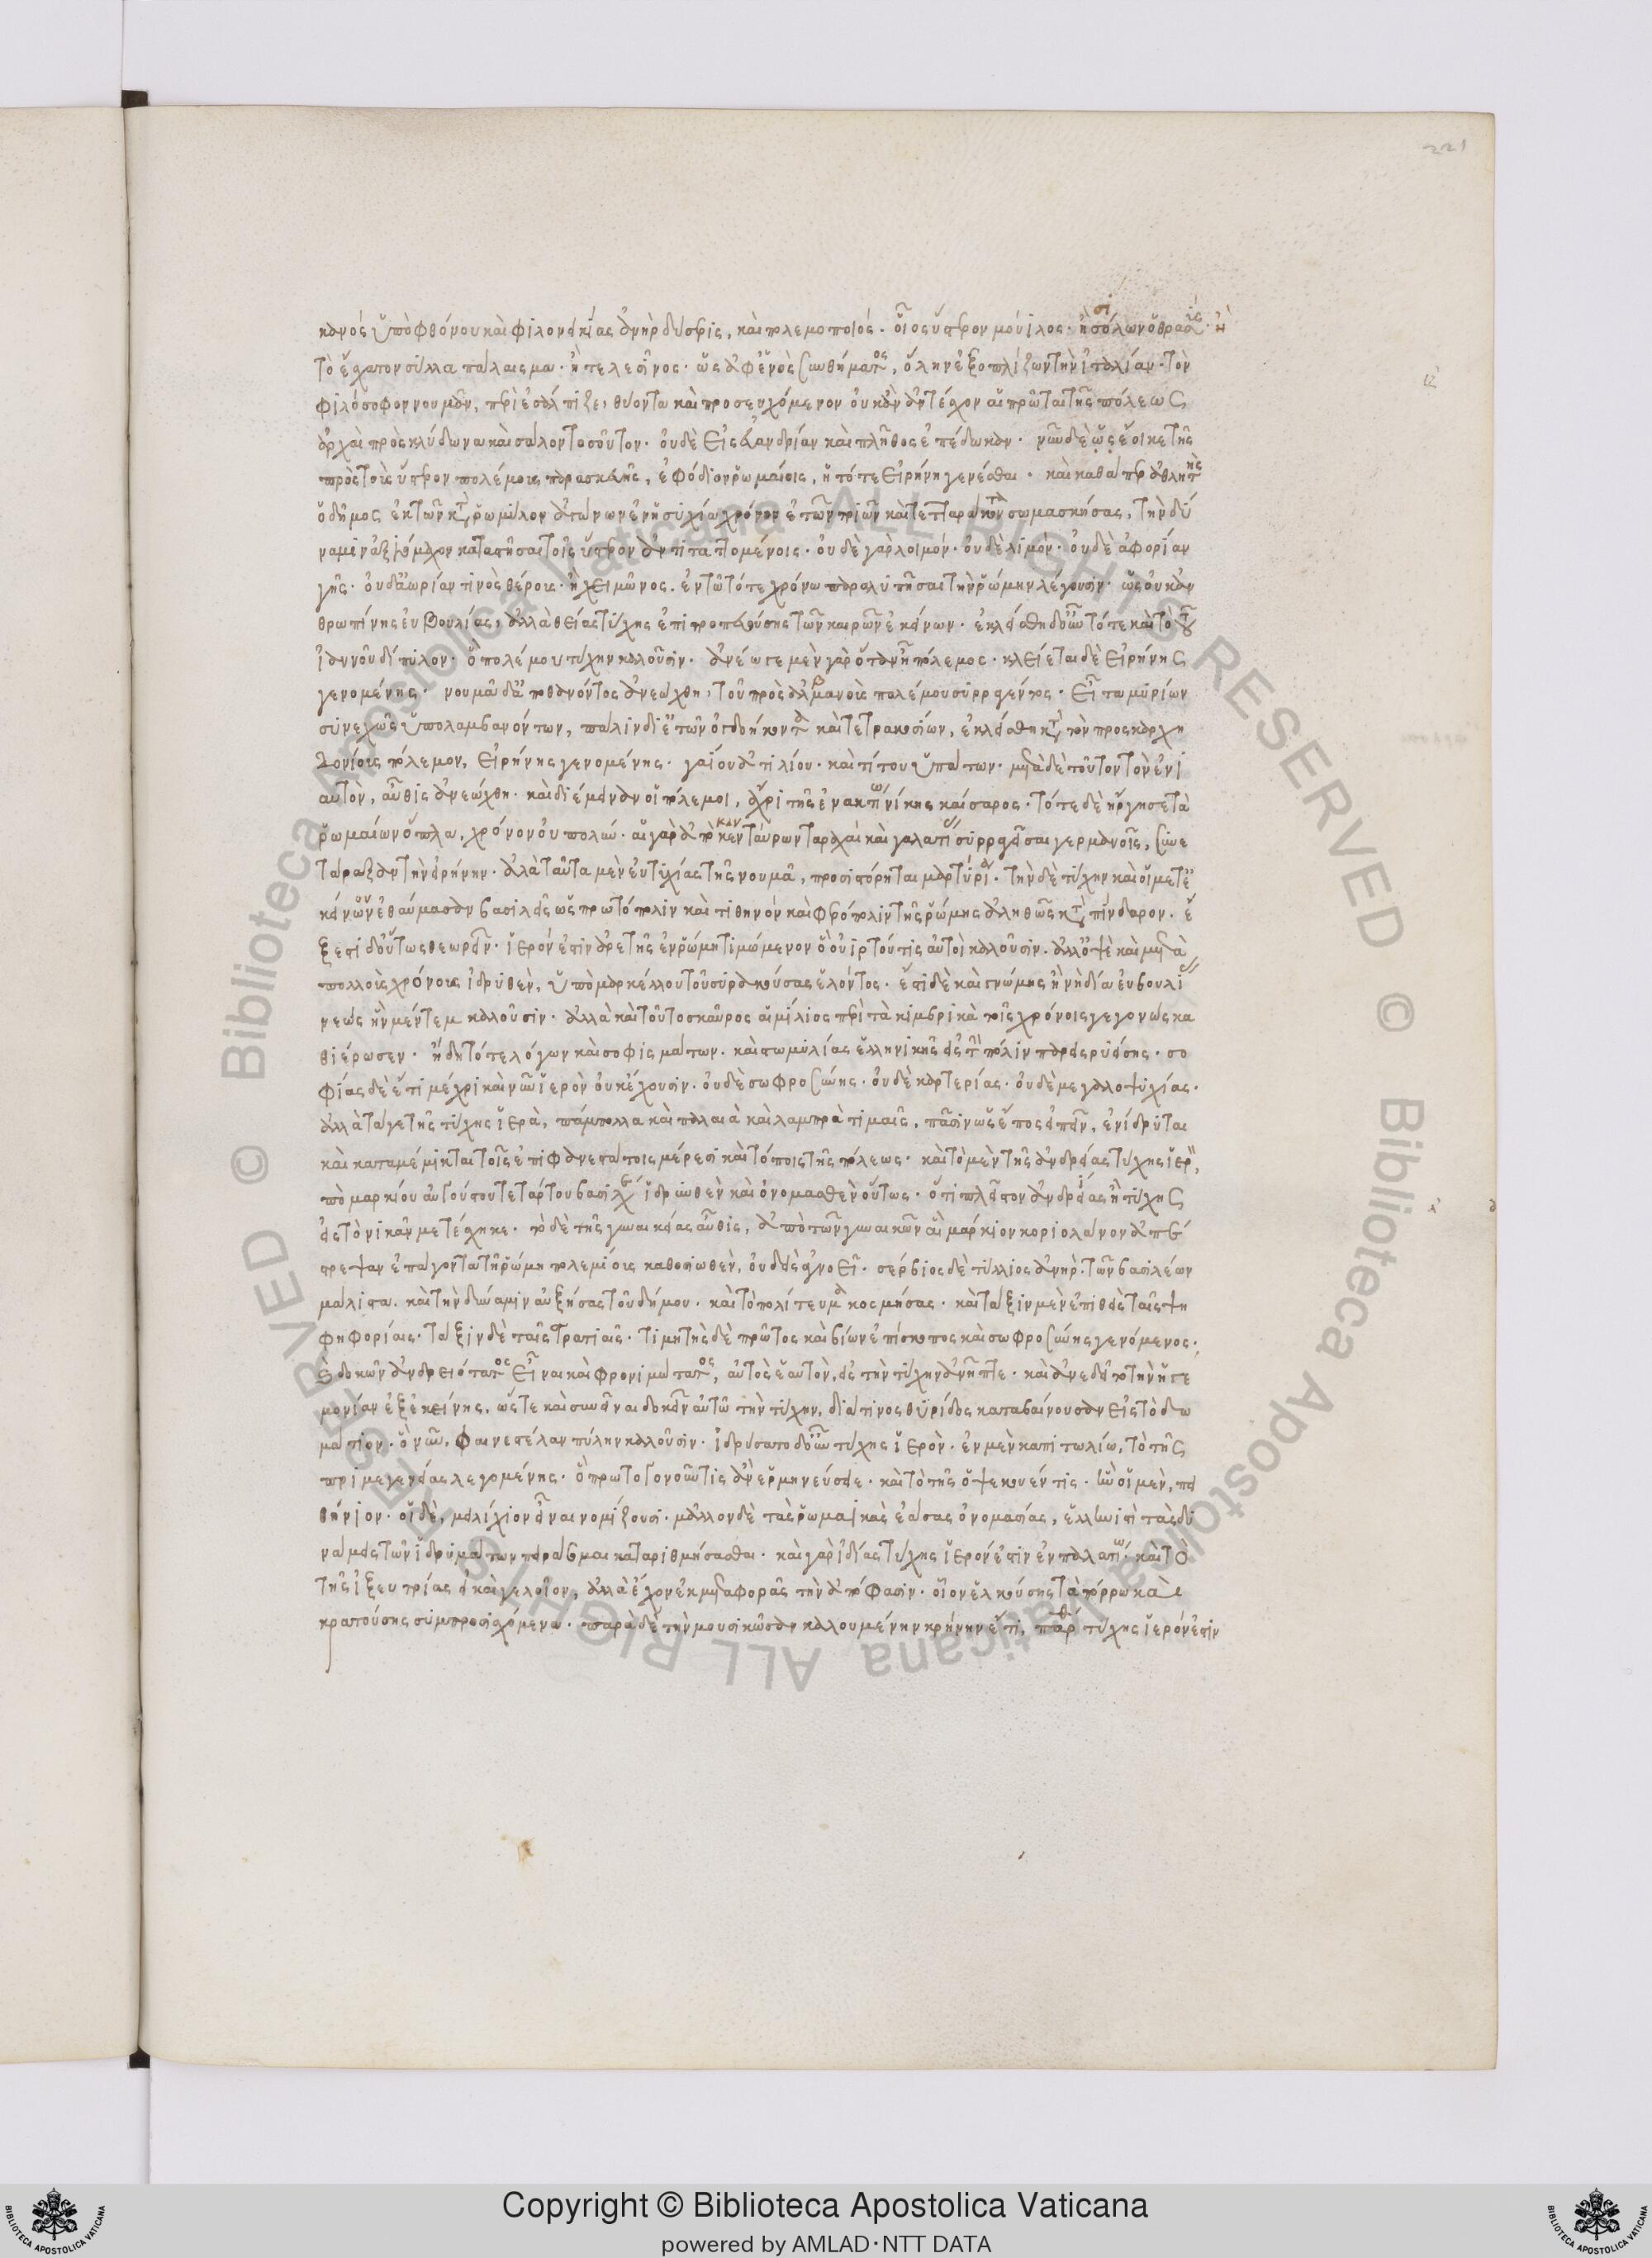 221
κανὸς ὑπὸ φθόνου καὶ φιλονεικίας ἀνὴρ δύσερις, καὶ πολεμοποιός. οἷος ὕστερον πούιλος. ἢ σόλων ὁ θρασ. ἢ
τὸ ἔσχατον σύλλα πάλαισμα. ἢ τελεσῖνος. ὡς ἀφ' ἑνὸς συνθήματος, ὅλην ἐξοπλίζων τὴν ἰταλίαν. τὸν
φιλόσοφον νουμᾶν, περιεσάλπιζε, θύοντα καὶ προσευχόμενον οὐκ ἂν ἀντέσχον αἱ πρῶται τῆς πόλεως
ἀρχαὶ πρὸς κλύδωνα καὶ σάλον τοσοῦτον. οὐδὲ εἰς εὐανδρίαν καὶ πλῆθος ἐπέδωκαν. νῦν δὲ ὡς ἔοικε τῆς
πρὸς τοὺς ὕστερον πολέμους παρασκευῆς, ἐφόδιον ῥωμαίοις, ἡ τότε εἰρήνη γενέσθαι. καὶ καθάπερ ἀθλητὴς
ὁ δῆμος ἐκ τῶν κατὰ ῥωμύλον ἀγώνων ἐν ἡσυχίᾳ χρόνον ἐτῶν τριῶν καὶ τετταράκοντα σωμασκήσας, τὴν δύ
ναμιν ἀξιόμαχον καταστῆσαι τοῖς ὕστερον ἀντιταττομένοις. οὐδὲ γὰρ λοιμόν. οὐδὲ λιμὸν. οὐδὲ ἀφορίαν
γῆς. οὐδ' ἀωρίαν τινὸς θέρους. ἢ χειμῶνος. ἐν τῷ τότε χρόνῳ παραλυπῆσαι τὴν ῥώμην λέγουσιν. ὡς οὐκ ἀν
θρωπίνης εὐβουλίας, ἀλλὰ θείας τύχης ἐπιτροπευούσης τῶν καιρῶν ἐκείνων. ἐκλείσθη δ' οὖν τότε καὶ τὸ τοῦ
ἰανοῦ δίπυλον. ὃ πολέμου τύχην καλοῦσιν. ἀνέωγε μὲν γὰρ ὅταν ἦ πόλεμος. κλείεται δὲ εἰρήνης
γενομένης. νουμᾶ δ' ἀποθανόντος ἀνεῴχθη, τοῦ πρὸς ἀλβανοὺς πολέμου συρραγέντος. εἶτα μυρίων
συνεχῶς ὑπολαμβανόντων, πάλιν δι' ἐτῶν ὀγδοήκοντα καὶ τετρακοσίων, ἐκλείσθη κατὰ τὸν πρὸς καρχη
δονίους πόλεμον, εἰρήνης γενομένης. γαίου ἀτιλίου. καὶ τίτου ὑπάτων. μετὰ δὲ τοῦτον τὸν ἐνι
αυτὸν, αὖθις ἀνεῴχθη. καὶ διέμειναν οἱ πόλεμοι, ἄχρι τῆς ἐν ακτίω νίκης καίσαρος. τότε δὲ ἤργησε τὰ
ῥωμαίων ὅπλα, χρόνον οὐ πολὺν. αἱ γὰρ ἀπὸ κεντάυρων ταραχαὶ καὶ γαλατίας συρραγεῖσαι γερμανοῖς, συνε
τάραξαν τὴν εἰρήνην. ἀλλὰ ταῦτα μὲν εὐτυχίας τῆς νουμᾶ, προσιστόρηται μαρτύρια. τὴν δὲ τύχην καὶ οἱ μετ' ἐ
κεῖνον ἐθαύμασαν βασιλεῖς ὡς πρωτόπολιν καὶ τιθηνὸν καὶ φερόπολιν τῆς ῥώμης ἀληθῶς κατὰ πίνδαρον. ἔ
ξεστι δ' οὕτως θεωρεῖν. ἱερόν ἐστιν ἀρετῆς ἐν ῥώμη τιμώμενον ὃ οὐιρτούτις αὐτοὶ καλοῦσιν. ἀλλ' ὀψὲ καὶ μετὰ
πολλοὺς χρόνους ἱδρυθὲν, ὑπὸ μαρκέλλου τοῦ συρακούσας ἑλόντος. ἔστι δὲ καὶ γνώμης ἢ νὴ δία ευβουλί
νεως ἣν μέντεμ καλοῦσιν. ἀλλὰ καὶ τοῦτο σκαῦρος αἰμίλιος περὶ τὰ κιμβρικὰ τοῖς χρόνοις γεγονὼς κα
θιέρωσεν. ἤδη τότε λόγων καὶ σοφισμάτων. καὶ στωμυλίας ἑλληνικῆς εἰς τὴν πόλιν παρεισρυείσης. σο
φίας δὲ ἔτι μέχρι καὶ νῦν ἱερὸν οὐκ ἔχουσιν. οὐδὲ σωφροσύνης. οὐδὲ καρτερίας. οὐδὲ μεγαλοψυχίας.
ἀλλὰ τά γε τῆς τύχης ἱερὰ, πάμπολλα καὶ παλαιὰ καὶ λαμπρὰ τιμαῖς, πᾶσιν ὡς ἔπος εἰπεῖν, ἐνίδρυται
καὶ καταμέμικται τοῖς ἐπιφανεστάτοις μέρεσι καὶ τόποις τῆς πόλεως. καὶ τὸ μὲν τῆς ἀνδρείας τύχης ἱερ,
πὸ μαρκίου αὐγούστου τετάρτου βασιλέως ἱδρυθὲν καὶ ὀνομασθὲν οὕτως. ὅτι πλεῖστον ἀνδρείας ἡ τύχης
εἰς τὸ νικᾶν μετέσχηκε. τὸ δὲ τῆς γυναικείας αὖθις, ἀπὸ τῶν γυναικῶν αἳ μάρκιον κοριολάνον ἀπέ
στρεψαν ἐπάγοντα τῆ ῥώμη πολεμίους καθοσιωθὲν, οὐδεὶς ἀγνοεῖ. σέρβιος δὲ τύλλιος ἀνὴρ. τῶν βασιλέων
μάλιστα. καὶ τὴν δύναμιν αὐξήσας τοῦ δήμου. καὶ τὸ πολίτευμα κοσμήσας. καὶ τάξιν μὲν ἐπιθεὶς ταῖς ψη
φηφορίαις. τάξιν δὲ ταῖς στρατιαῖς. τιμητὴς δὲ πρῶτος καὶ βίων ἐπίσκοπος καὶ σωφροσύνης γενόμενος.
δοκῶν ἀνδρειότατος εἶναι καὶ φρονιμώτατος, αὐτὸς ἑαυτὸν, εἰς τὴν τύχην ἀνῆπτε. καὶ ἀνεδεῖτο τὴν ἡγε
μονίαν ἐξ ἐκείνης. ὥστε καὶ συνεῖναι δοκεῖν αὐτῶ τὴν τύχην, διά τινος θυρίδος καταβαίνουσαν εἰς τὸ δω
μάτιον. ὃ νῦν, φαινεστέλαν πύλην καλοῦσιν. ἱδρύσατο δ' οὖν τύχης ἱερὸν. ἐν μὲν καπιτωλίω, τὸ τῆς
πριμιγενείας λεγομένης. ὃ πρωτογονοῦν τις ἂν ἑρμηνεύσειε. καὶ τὸ τῆς ὀψεκουέντις. ἣν οἱ μὲν, πει
θήνιον. οἱ δὲ, μειλίχιον εἶναι νομίζουσι. μᾶλλον δὲ τὰς ῥωμαικὰς ἐάσας ὀνομασίας, ἑλληνιστὶ τὰς δυ
νάμεις τῶν ἱδρυμάτων πειράσομαι καταριθμήσασθαι. καὶ γὰρ ἰδίας τύχης ἱερόν ἐστιν ἐν παλατίω. καὶ τὸ
τῆς ἰξευτρίας εἰ καὶ γελοῖον, ἀλλὰ ἔχον ἐκ μεταφορᾶς τὴν ἀπόφασιν. οἷον ἑλκούσης τὰ πόρρω καὶ
κρατούσης συμπροσισχόμενα. παρὰ δὲ τὴν μουσκῶσαν καλουμένην κρήνην ἔτι, παρθ τύχης ἱερόν ἐστιν
Copyright © Biblioteca Apostolica Vaticana
powered by AMLAD·NTT DATA